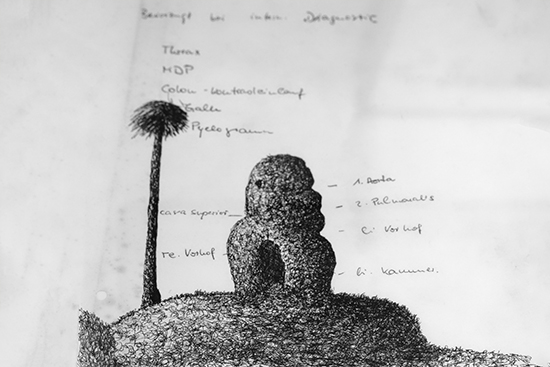 bei intern. Diagnostic
Thorax
MDP
Colon - Kontrasteinlauf
Galle
Pyelogramm
1. Aorta
2. Pulmonalis
cava superior
li. Vorhof
re. Vorhof
li. Kammer